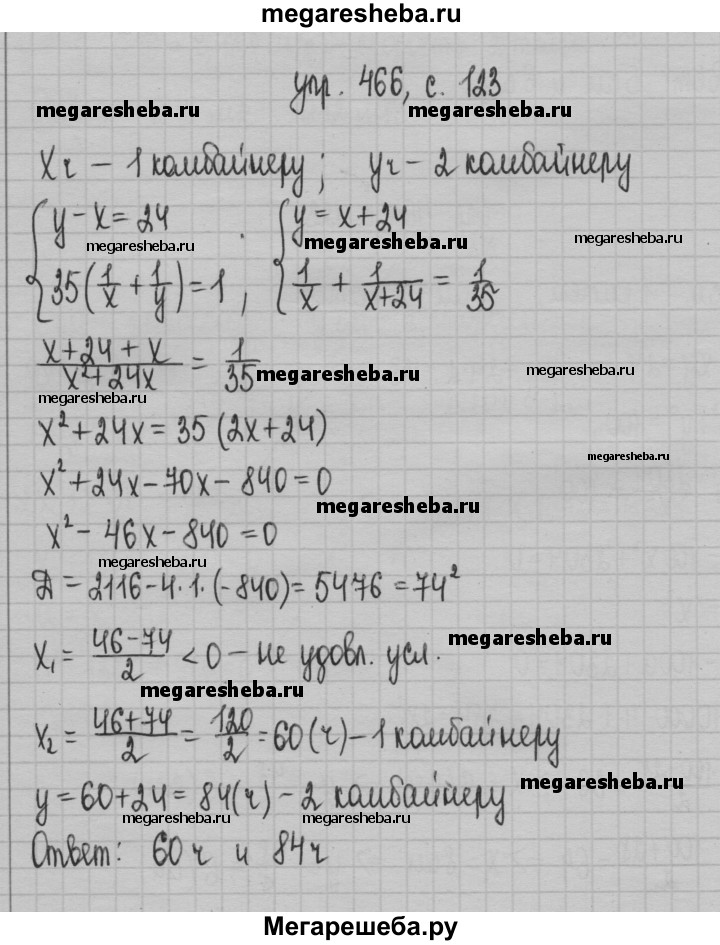 megaresheba.ru
упр. 466, с. 123
megaresheba.ru megaresheba.ru
Xч – 1 комбайнеру; yч – 2 комбайнеру
{ y – x = 24 { y = x + 24
megaresheba.ru megaresheba.ru megaresheba.ru
{ 35(1/x + 1/y) = 1, { 1/x + 1/(x+24) = 1/35
(x+24+x)/(x²+24x) = 1/35
megaresheba.ru megaresheba.ru
megaresheba.ru
x² + 24x = 35(2x + 24)
megaresheba.ru
x² + 24x – 70x – 840 = 0
megaresheba.ru
x² – 46x – 840 = 0
megaresheba.ru
Д = 2116 – 4·1·(–840) = 5476 = 74²
x₁ = (46–74)/2 < 0 – не удовл. усл.
megaresheba.ru
megaresheba.ru
x₂ = (46+74)/2 = 120/2 = 60(ч) – 1 комбайнеру
megaresheba.ru
y = 60+24 = 84(ч) – 2 комбайнеру
megaresheba.ru megaresheba.ru
Ответ: 60ч и 84ч
Мегарешеба.ру